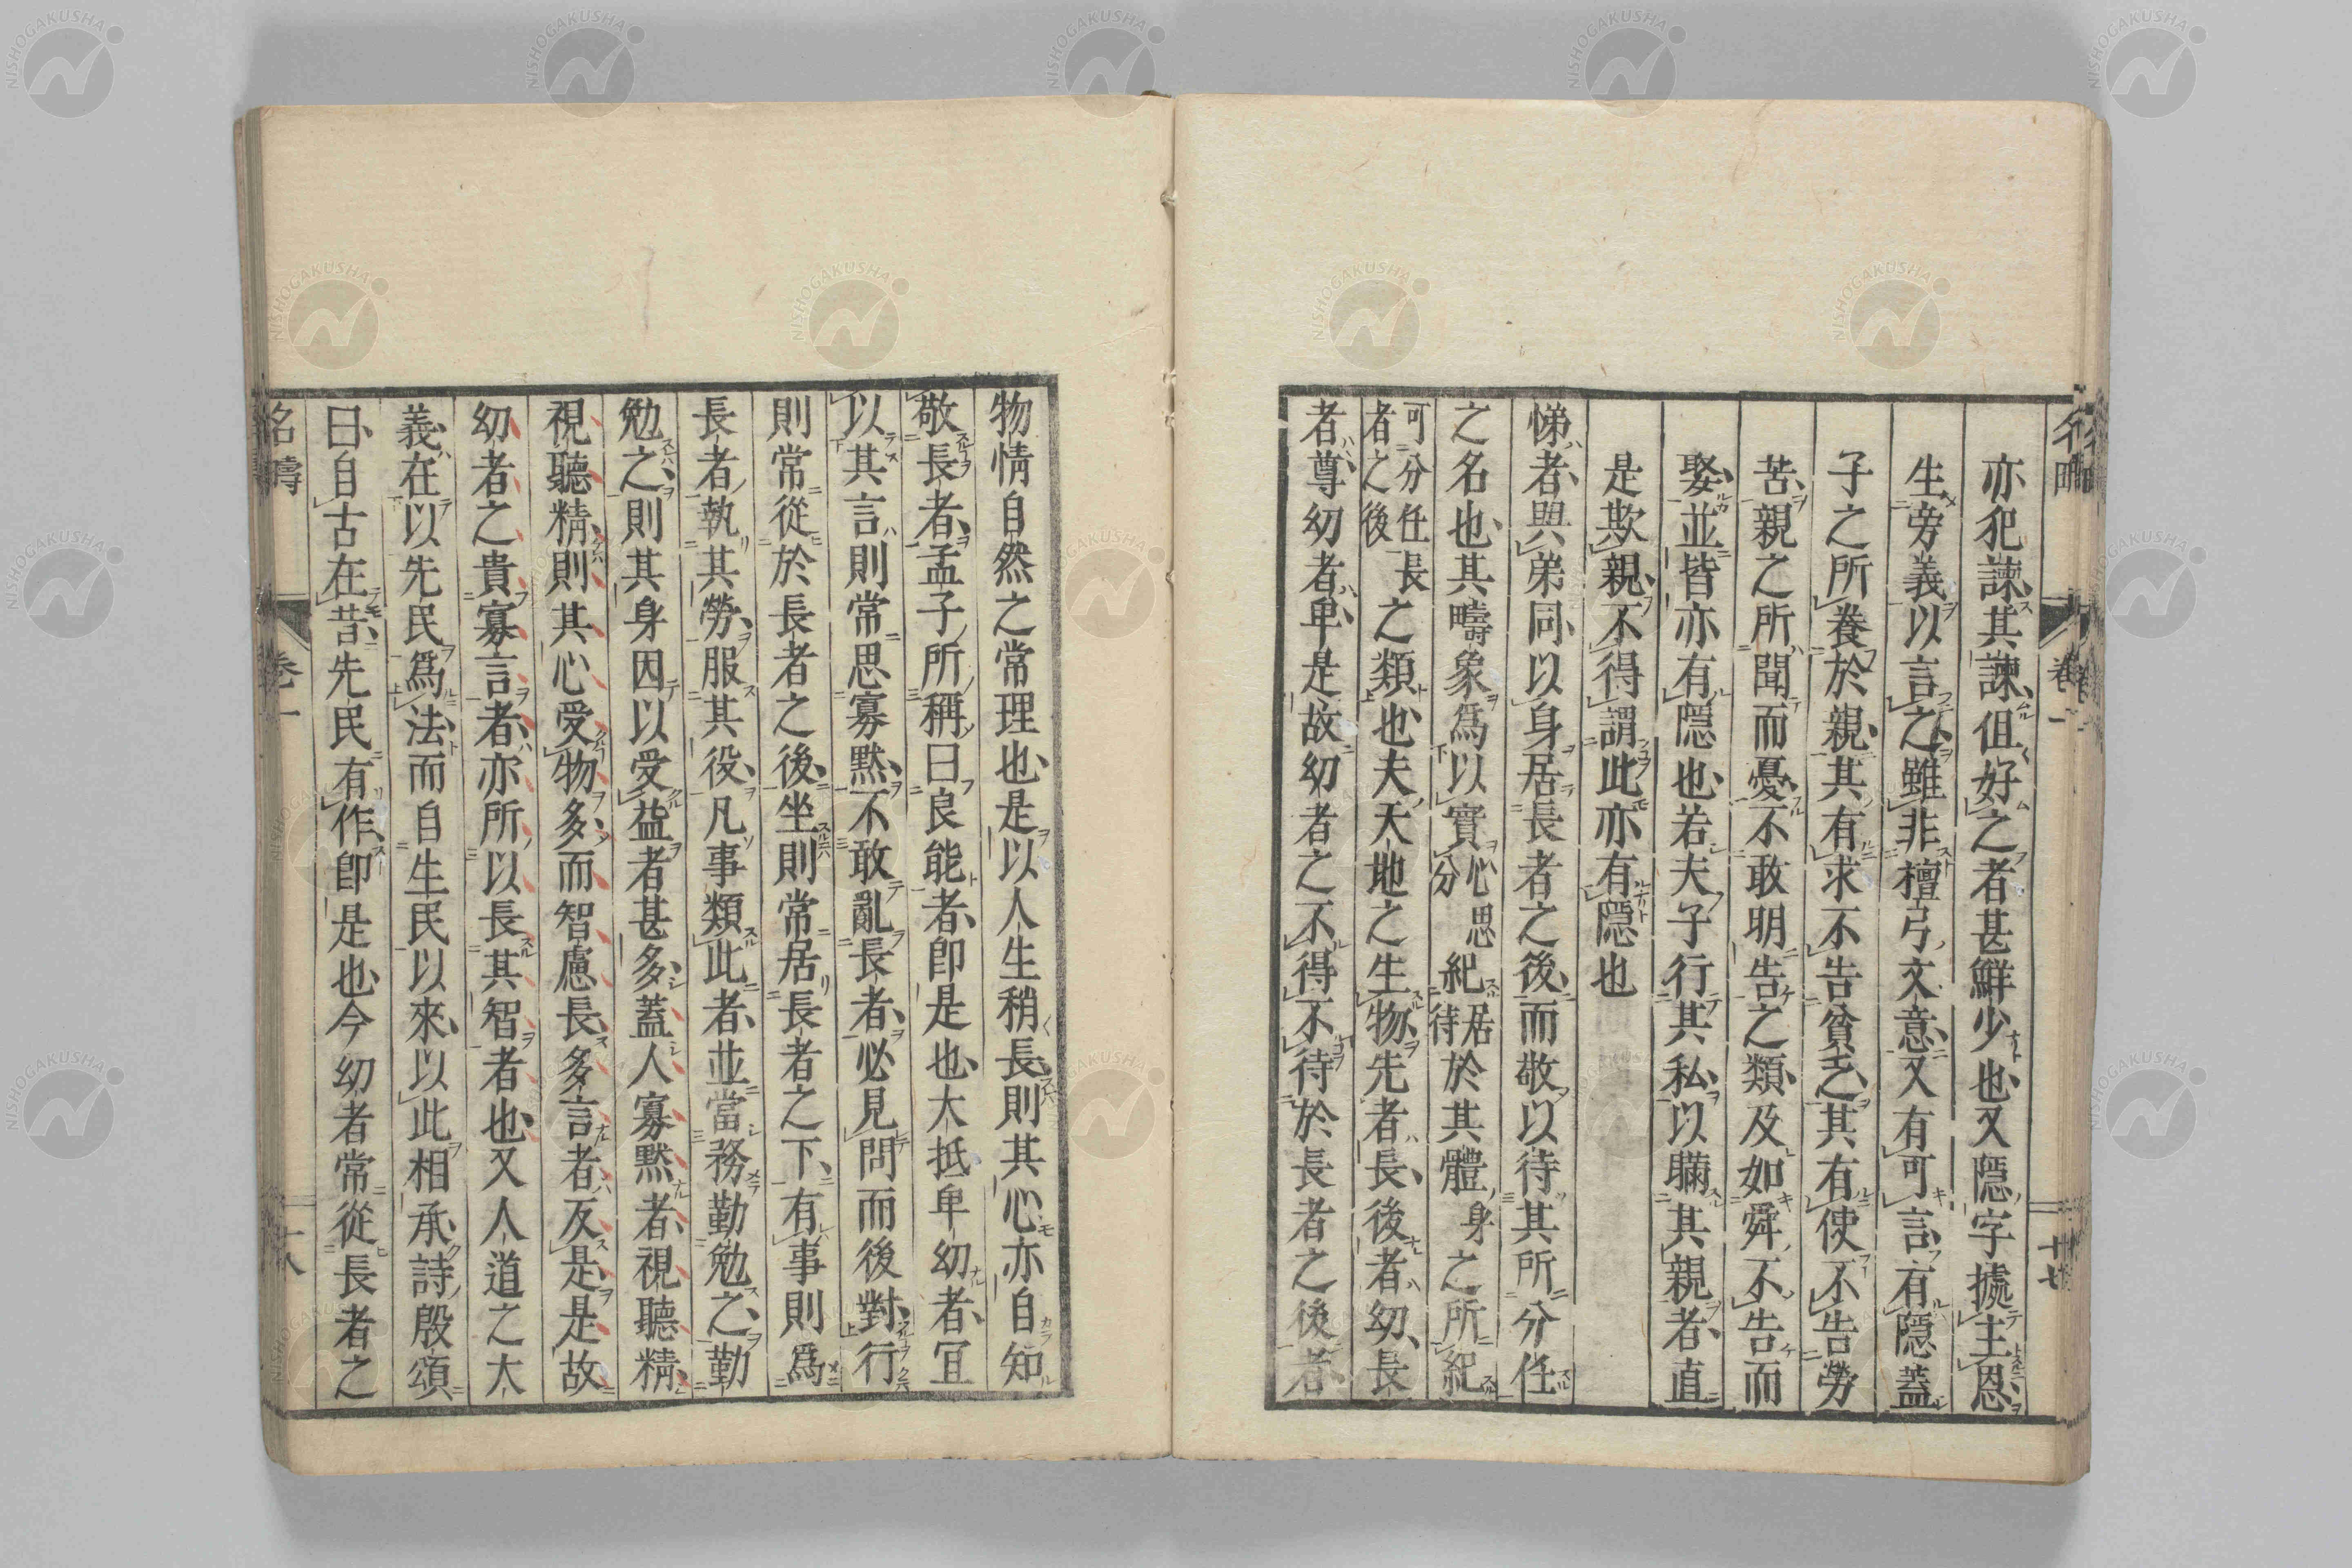 亦犯諫其諫但好之者甚鮮少也又隱字據主恩
生旁義以言之雖非檀弓文意又有可言有隱蓋
子之所養於親其有求不告貧乏其有使不告勞
苦親之所聞而憂不敢明告之類及如舜不告而
娶並皆亦有隱也若夫子行其私以瞞其親者直
是欺親不得謂此亦有隱也
悌者與弟同以身居長者之後而敬以待其所分任
之名也其疇象爲以實心思分紀居待於其體身之所紀
可分任長者之後之類也夫天地之生物先者長後者幼長
者尊幼者卑是故幼者之不得不待於長者之後者
物情自然之常理也是以人生稍長則其心亦自知
敬長者孟子所稱曰良能者即是也大抵卑幼者宜
以其言則常思寡默不敢亂長者必見問而後對行
則常從於長者之後坐則常居長者之下有事則爲
長者執其勞服其役凡事類此者並當務勤勉之勤
勉之則其身因以受益者甚多蓋人寡默者視聽精
視聽精則其心受物多而智慮長多言者反是是故
幼者之貴寡言者亦所以長其智者也又人道之大
義在以先民爲法而自生民以來以此相承詩殷頌
曰自古在昔先民有作即是也今幼者常從長者之
名疇
卷一
十七
名疇
卷一
十八
NISHOGAKUSHA